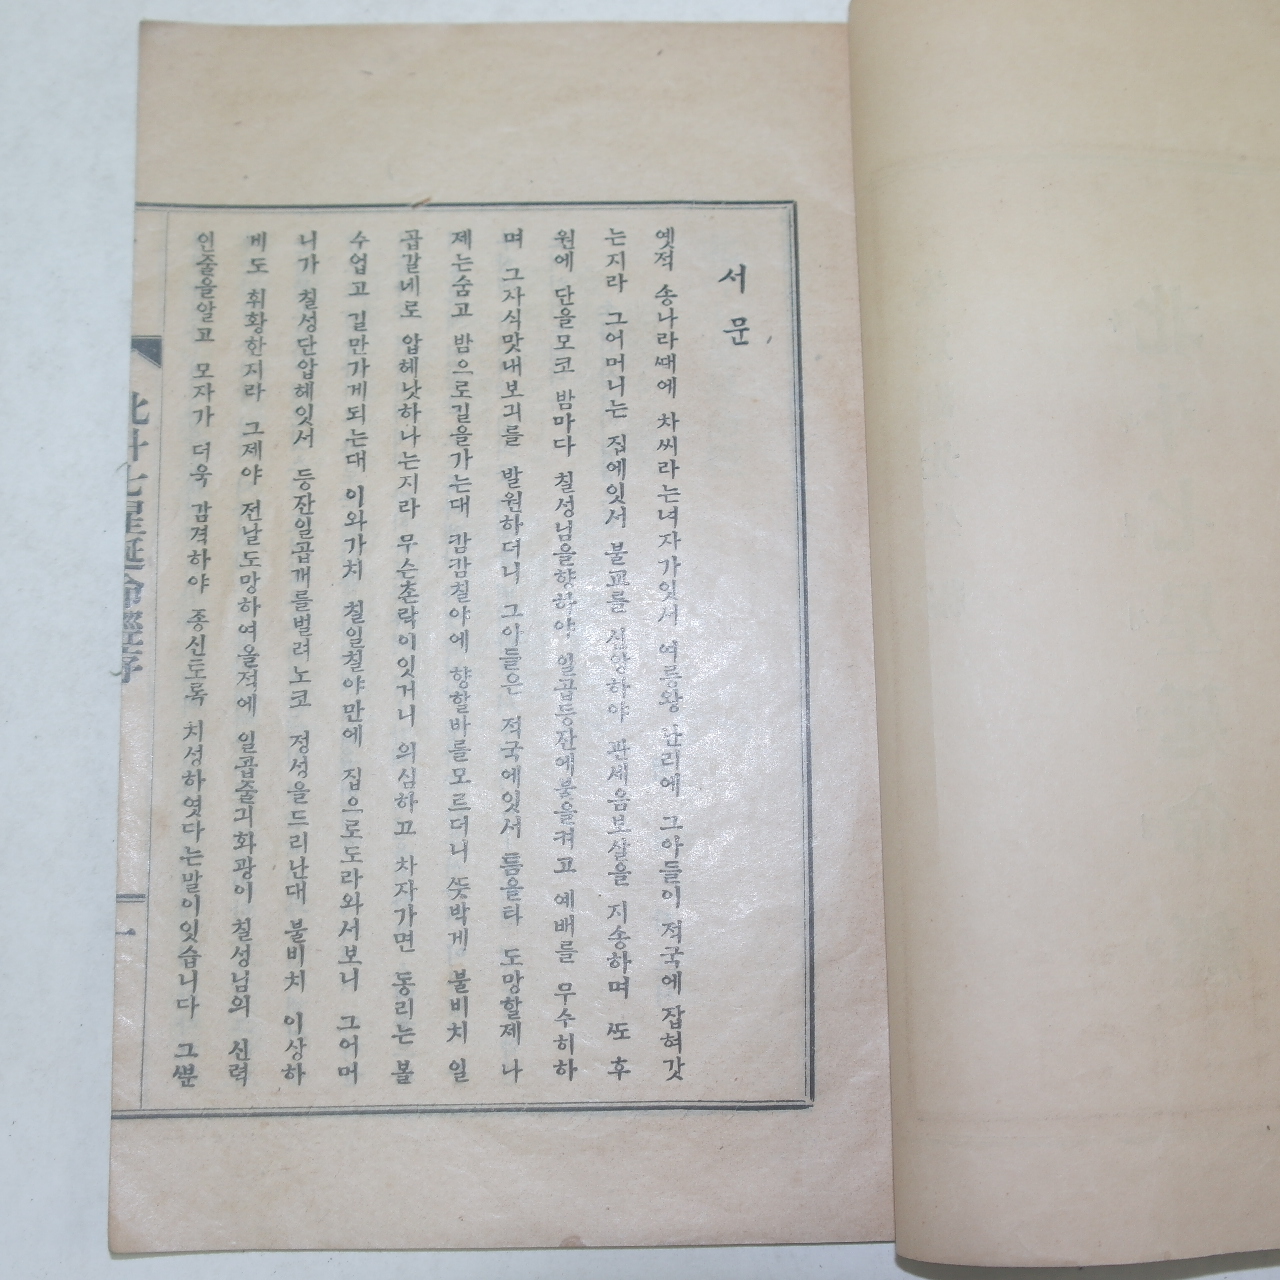 서문
옛적 송나라때에 차씨라는녀자가잇서 여릉왕 란리에 그아들이 적국에 잡혀갓
는지라 그어머니는 집에잇서 불교를 신앙하야 관세음보살을 지송하며 ᄯᅩ 후
원에 단을모코 밤마다 칠성님을향하야 일곱등잔에불을켜고 예배를 무수히하
며 그자식맛내보긔를 발원하더니 그아들은 적국에잇서 틈을타 도망할제 나
제는숨고 밤으로길을가는대 캄캄칠야에 향할바를모르더니 ᄯᅳᆺ박게 불비치 일
곱갈네로 압헤낫하나는지라 무슨촌락이잇거니 의심하고 차자가면 동리는 볼
수업고 길만가게되는대 이와가치 칠일칠야만에 집으로도라와서보니 그어머
니가 칠성단압헤잇서 등잔일곱개를벌려노코 정성을드리난대 불비치 이상하
게도 휘황한지라 그제야 전날도망하여올적에 일곱줄긔화광이 칠성님의 신력
인줄을알고 모자가 더욱 감격하야 종신토록 치성하엿다는말이잇습니다 그ᄲᅮᆫ
北斗七星延命經序
一